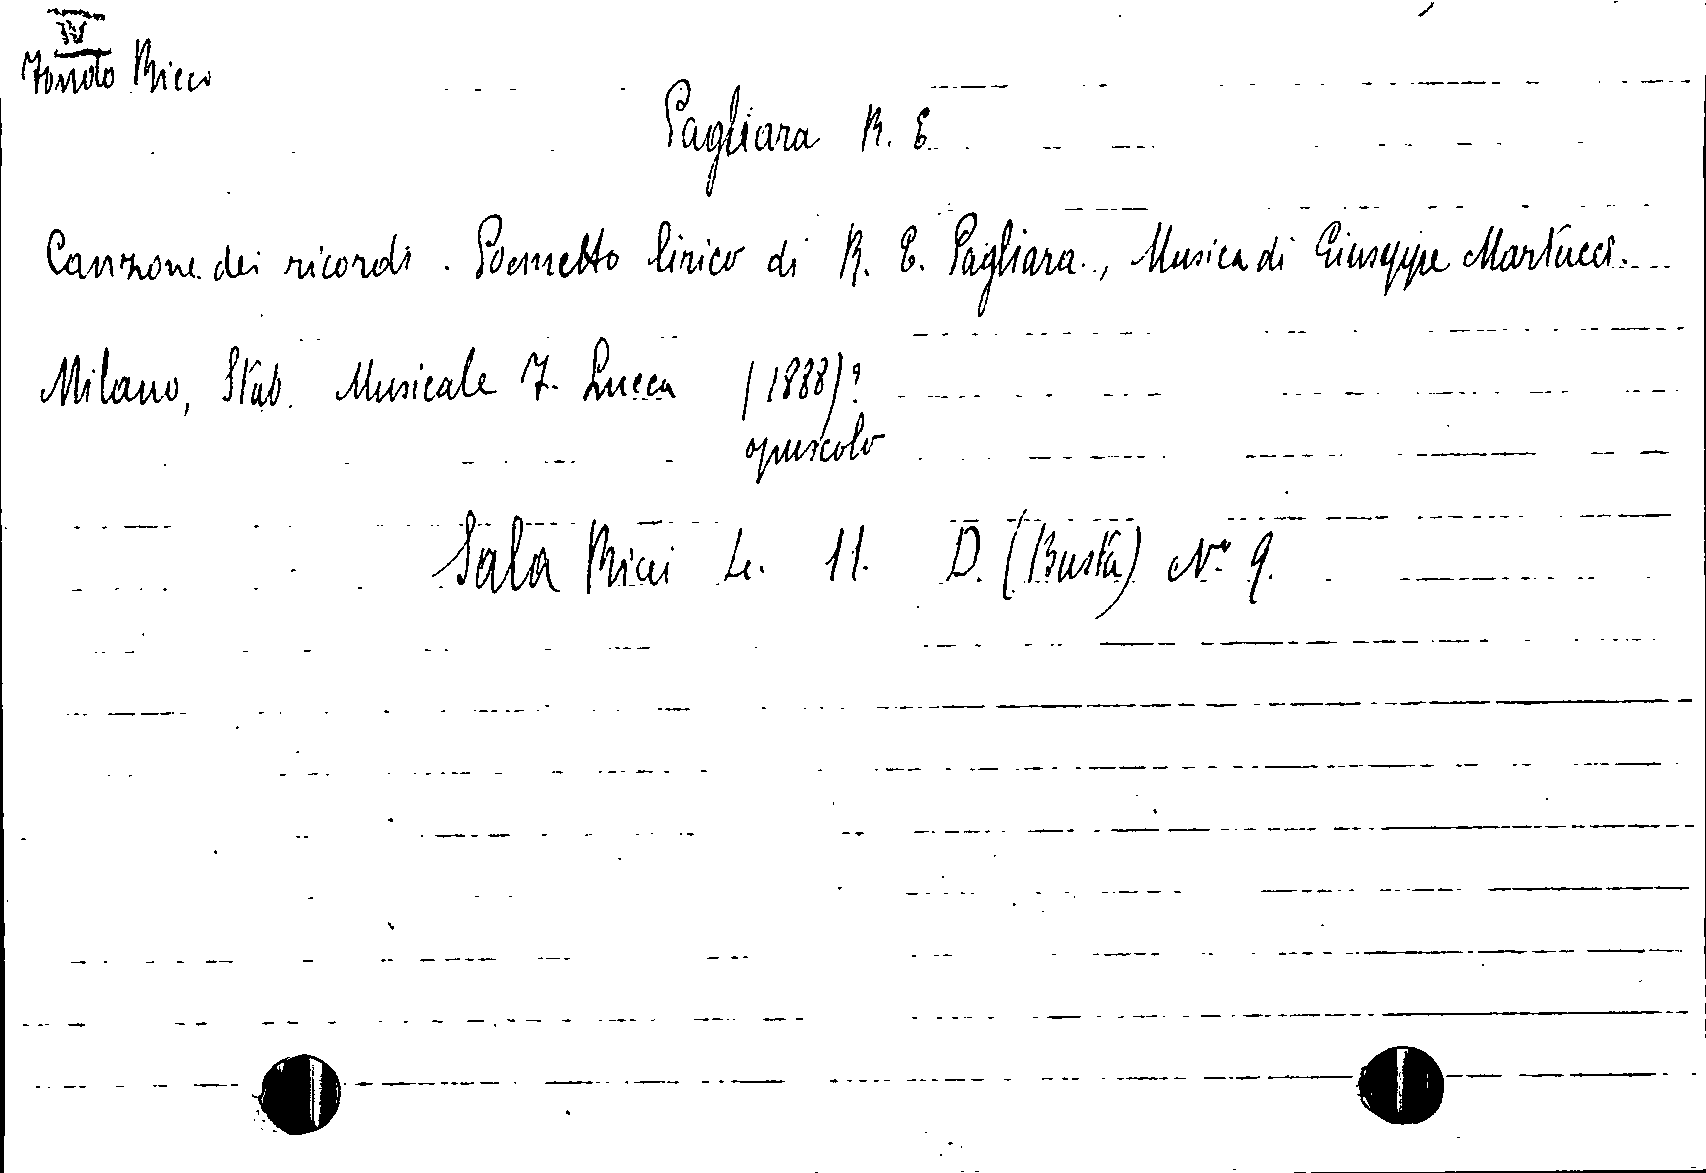 IV
Fondo Ricci
Pagliara R. E.
Canzone dei ricordi. Poemetto lirico di R. E. Pagliara., Musica di Giuseppe Martucci.
Milano, Stab. Musicale F. Lucca (1888)?
opuscolo
Sala Ricci Le. 11. D. (Busta) Nº 9.